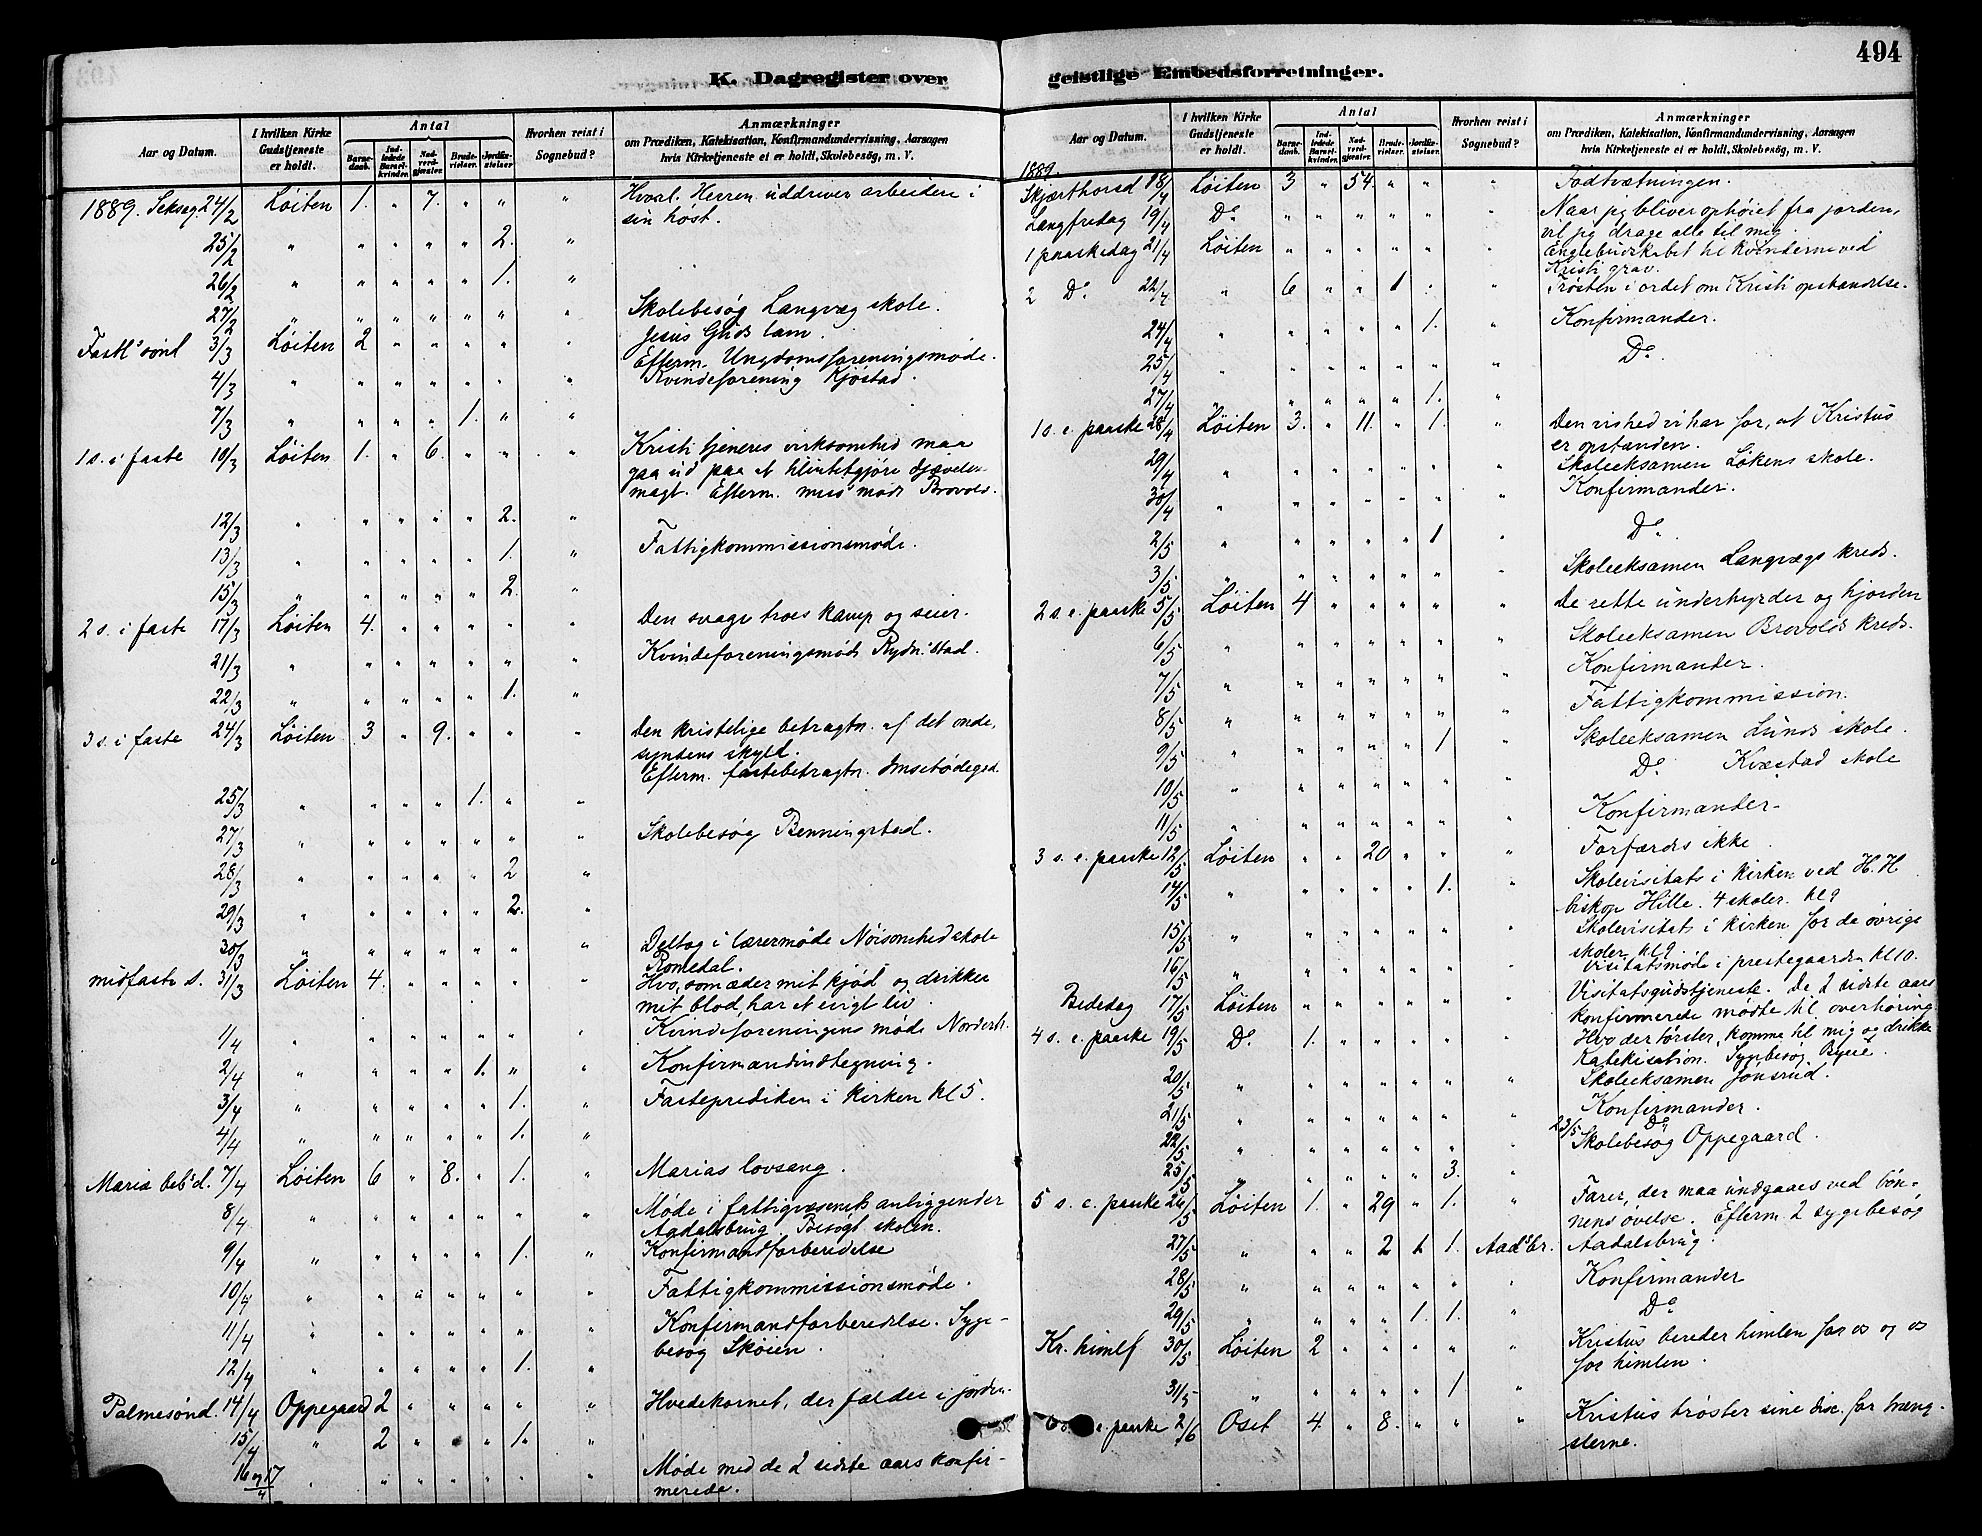 494
K. Dagregister over
Aar og Datum. I hvilken Kirke Gudstjeneste er holdt. Antal Barnedaab. Indledede Barselkvinder. Nadverdgjæster. Brudevielser. Jordfæstelser. Hvorhen reist i Sognebud? Anmærkninger om Prædiken, Katekisation, Konfirmandundervisning, Aarsagen hvis Kirketjeneste et er holdt, Skolebesøg, m. V.
1889. Seksag 24/2 Løiten 1. " 7. " " " Hvorl. Herren uddriver arbeidere i
sin høst.
25/2 " " " " " 2. "
26/2 " " " " " 1. "
27/2 " " " " " " " Skolebesøg Langvæg skole.
Fastl.s sønd 3/3 Løiten 2 " " " " " Jesus Guds lam.
Efterm. Ungdomsforeningsmøde.
4/3 " " " " " " " Kvindeforening Kjøstad.
7/3 " " " " 1. " "
1 s. i faste 10/3 Løiten 1. " 6. " " " Kristi tjeneres virksomhed maa
gaa ud paa at tilintetgjøre djævelens
magt. Efterm. miss møde Brovold.
12/3 " " " " " 2. "
13/3 " " " " " 1. " Fattigkommissionsmøde.
15/3 " " " " " 2. "
2 s. i faste 17/3 Løiten 4. " " " " " Den svage troes kamp og seier.
21/3 " " " " " " " Kvindeforeningsmøde Rydningstad.
22/3 " " " " " 1. "
3 s. i faste 24/3 Løiten 3 " 9. " " " Den kristelige betragtn. af det onde,
syndens skyld.
Efterm. fastebetragtn. Imsetødeged.
25/3 " " " " 1. " "
27/3 " " " " " " " Skolebesøg Benningstad.
28/3 " " " " " 2 "
29/3 " " " " " 2. "
30/3 " " " " " " " Deltog i lærermøde Nøisomhed skole
Romedal.
midfaste s. 31/3 Løiten 4. " " " " " Hvo, som æder mit kjød og drikker
mit blod, har et evigt liv.
1/4 " " " " " " " Kvindeforeningens møde Norderh.
2/4 " " " " 1. " " Konfirmandindtegning.
3/4 " " " " " 1. " Fasteprediken i kirken kl 5.
4/4 " " " " " 1. "
Mariæ beb.s d. 7/4 Løiten 6 " 8. " 1. " Marias lovsang.
8/4 " " " " " " " Møde i fattigvæsenets anliggender
Aadalsbrug. Besøgt skolen.
9/4 " " " " " 1. " Konfirmandforberedelse
10/4 " " " " " " " Fattigkommissionsmøde.
11/4 " " " " " " " Konfirmandforberedelse. Syge-
besøg Skøien.
12/4 " " " " " 1. "
Palmesønd. 14/4 Oppegaard 2 " " " " " Hvedekornet, der falder i jorden.
15/4 " 2 " " " 1. "
16 og 17/4 " " " " " " " Møde med de 2 sidste aars konfir-
merede.
geistlige Embedsforretninger.
Aar og Datum. I hvilken Kirke Gudstjeneste er holdt. Antal Barnedaab. Indledede Barselkvinder. Nadverdgjæster. Brudevielser. Jordfæstelser. Hvorhen reist i Sognebud? Anmærkninger om Prædiken, Katekisation, Konfirmandundervisning, Aarsagen hvis Kirketjeneste et er holdt, Skolebesøg, m. V.
1889.
Skjærthorsd 18/4 Løiten 3 " 54. " " " Fodtvætningen.
Langfredag 19/4 Do " " " " " " Naar jeg bliver ophøiet fra jorden,
vil jeg drage alle til mig.
1 paaskedag 21/4 Løiten " " " " " " Englebudskabet til kvinderne ved
Kristi grav.
2 Do 22/4 " 6 " " 1 " " Trøsten i ordet om Kristi opstandelse.
24/4 " " " " " 1. " Konfirmander.
25/4 " " " " " " " Do.
27/4 " " " " " 1. "
1 s. e. paaske 28/4 Løiten 3. " 11. " 1. " Den vished vi har for, at Kristus
er opstanden.
29/4 " " " " " " " Skoleeksamen Løkens skole.
30/4 " " " " " " " Konfirmander.
2/5 " " " " " 1 " Do.
3/5 " " " " " " " Skoleeksamen Langvægs kreds.
2 s. e. paaske 5/5 Løiten 4 " " " " " De rette underhyrder og hjorden
6/5 " " " " " " " Skoleeksamen Brovolds kreds.
7/5 " " " " " " " Konfirmander.
8/5 " " " " " " " Fattigkommission.
9/5 " " " " " 1 " Skoleeksamen Lunds skole.
10/5 " " " " " " " Do. Kvæstad skole
11/5 " " " " " " " Konfirmander.
3 s. e. paaske 12/5 Løiten " " 20 " " " Forfærdes ikke.
14/5 " " " " " 1. " Skolevisitats i kirken ved H. H
biskop Hille. 4 skoler. kl 9
15/5 " " " " " " " Skolevisitats i kirken for de øvrige
skoler kl 9.
16/5 " " " " " " " Visitatsmøde i prestegaarden kl 10.
Bededag 17/5 Løiten " " " " " " Visitatsgudstjeneste. De 2 sidste aars
konfirmerede mødte til overhøring.
4 s. e. paaske 19/5 Do. 1. " " " " " Hvo der tørster, komme til mig og drikke
Katekisation. Sygebesøg Byeie.
20/5 " " " " " " " Skoleeksamen Jønsrud.
21/5 " " " " " " " Konfirmander.
22/5 " " " " " " " 23/5 Do
Skolebesøg Oppegaard.
25/5 " " " " " 3. "
5 s. e. paaske 26/5 Løiten 1. " 29 " 1. " Farer, der maa undgaaes ved bøn-
nens øvelse. Efterm. 2 sygebesøg
27/5 " " " 2 1 1. Aad.s br. Aadalsbrug.
28/5 " " " " " " " Konfirmander
29/5 " " " " 1 1. " Do
Kr. himlf 30/5 Løiten 2 " " " " " Kristus bereder himlen for os og os
for himlen.
31/5 " " " " " 1 "
e paaske 2/6 Oset 4. " 8. " " " Kristus trøster sine disc. for træng-
slerne.